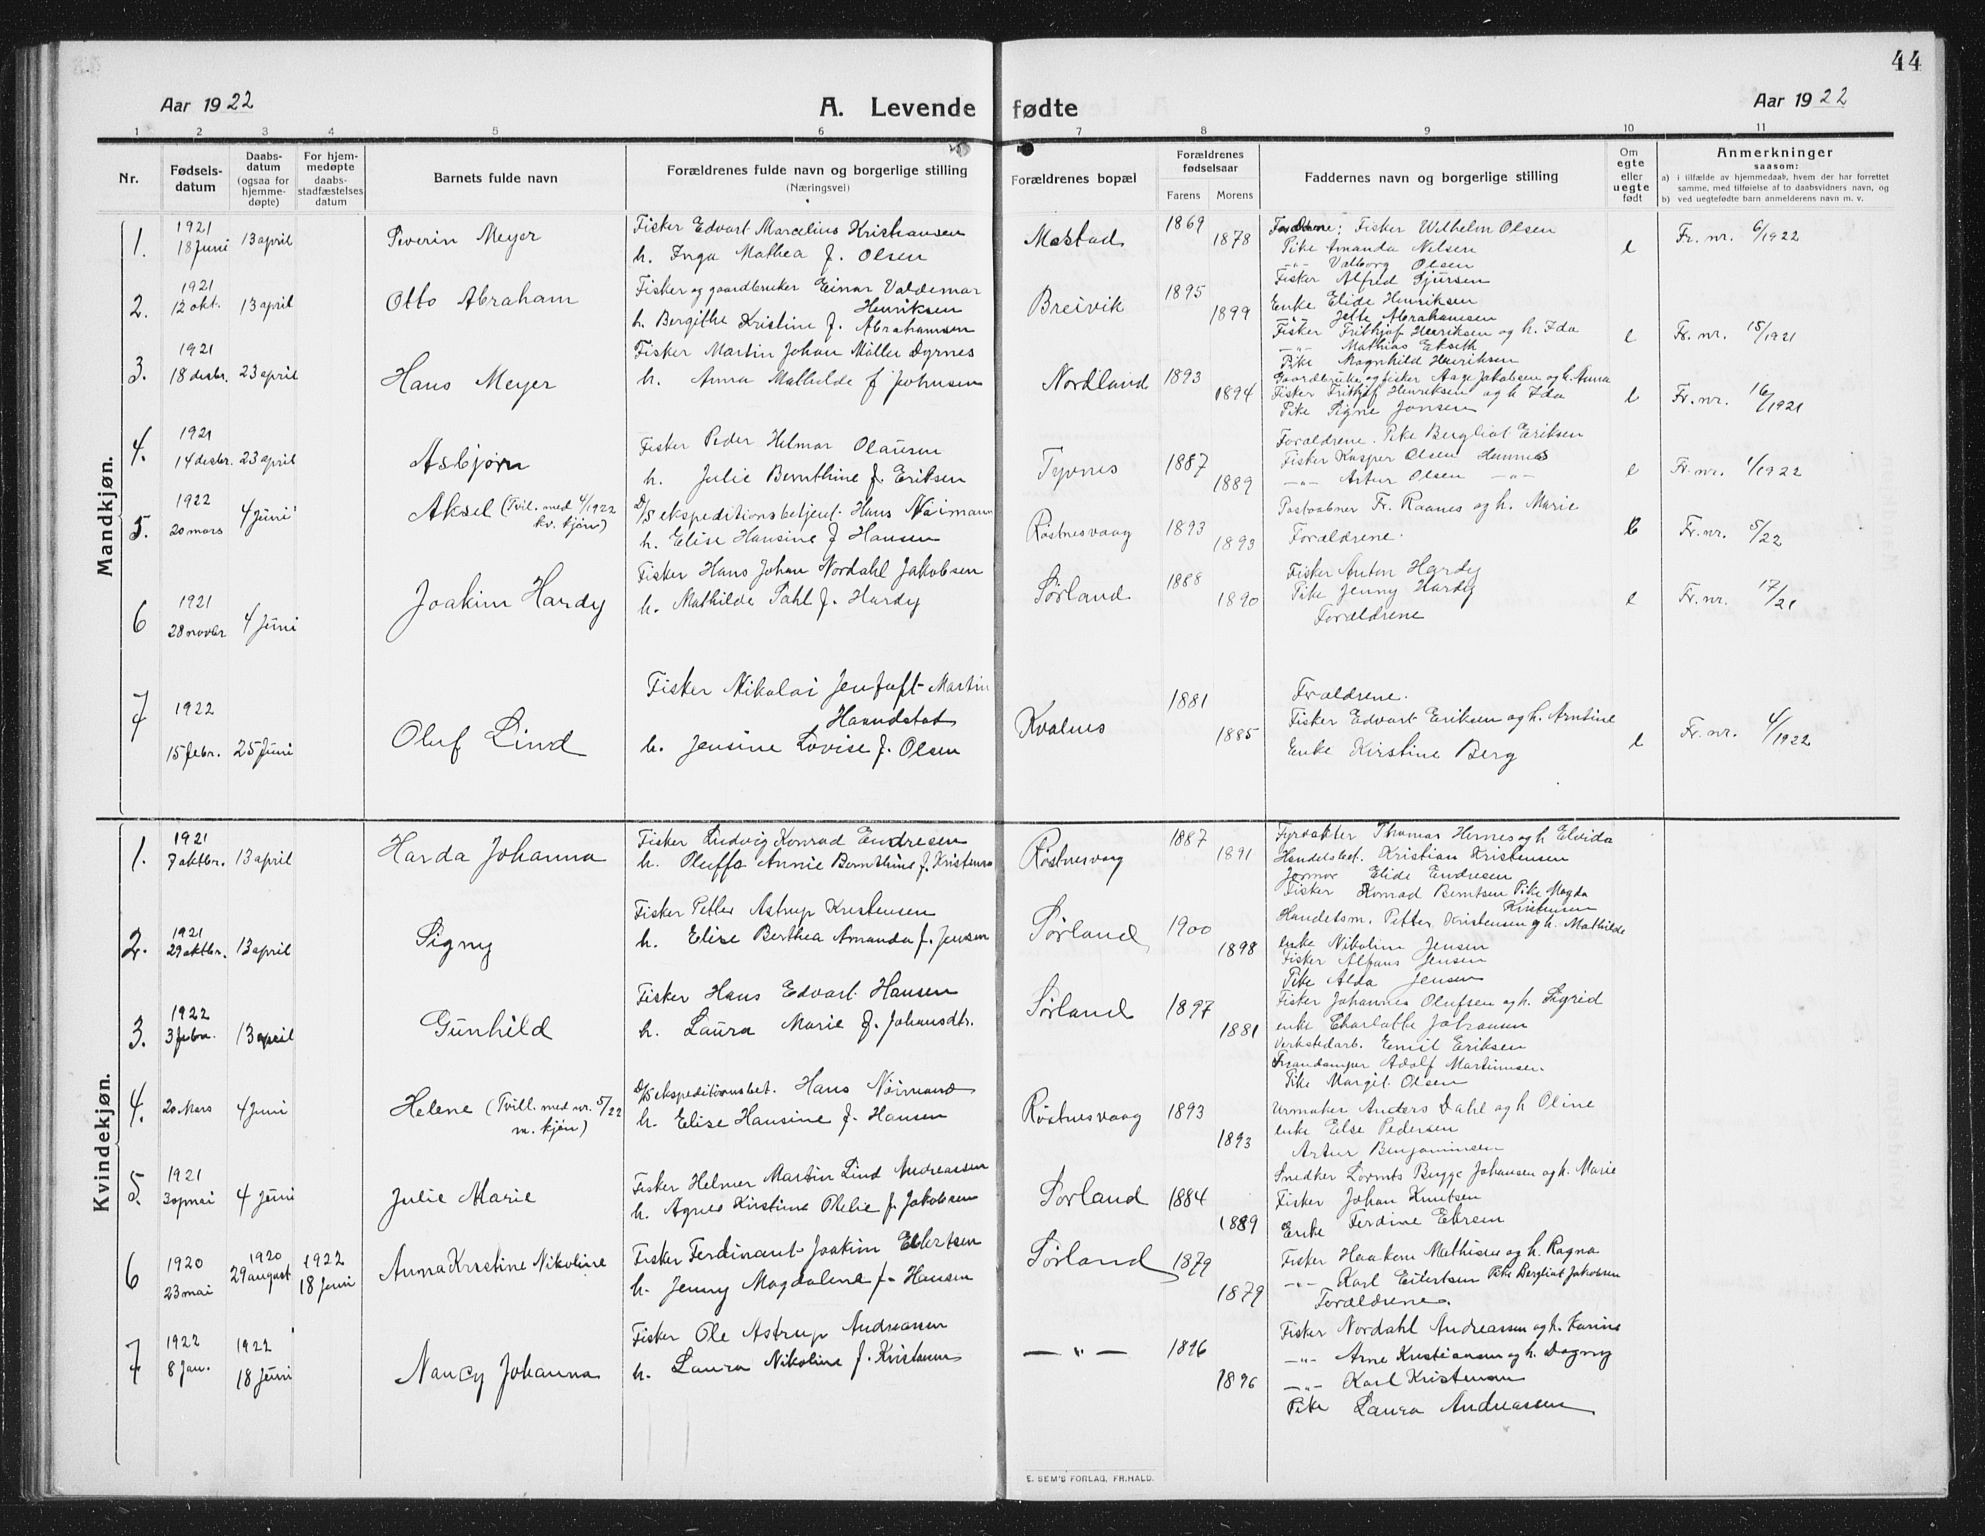 44
Aar 1922
A. Levende fødte
Aar 1922
1 2 3 4 5 6 7 8 9 10 11
Nr.
Fødsels-
datum
Daabs-
datum
(ogsaa for
hjemme-
døpte)
For hjem-
medøpte
daabs-
stadfæstelses
datum
Barnets fulde navn
Forældrenes fulde navn og borgerlige stilling
(Næringsvei)
Forældrenes bopæl
Forældrenes
fødselsaar
Farens Morens
Faddernes navn og borgerlige stilling
Om
egte
eller
uegte
født
Anmerkninger
saasom:
a) i tilfælde av hjemmedaab, hvem der har forrettet
samme, med tilføielse af to daabsvidners navn, og
b) ved uegtefødte barn anmelderens navn m. v.
Mandkjøn.
1. 1921 18 juni 13 april Severin Meyer
Fisker Edvart Marcelius Kristiansen
h. Inga Mathea f. Olsen
Mostad 1869 1878
Forældrene; Fisker Wilhelm Olsen
Pike Amanda Nilsen
-"- Valborg Olsen
Fisker Alfred Sjursen
e Fr. nr. 6/1922
2. 1921 12 okt. 13 april Otto Abraham
Fisker og gaardbruker Einar Valdemar
Henriksen
h. Bergithe Kristine f. Abrahamsen
Breivik 1895 1899
Enke Elide Henriksen
-"- Jette Abrahamsen
Fisker Frithjof Henriksen og h. Ida
-"- Mathias Ekseth
Pike Magnhild Henriksen
e Fr. nr. 15/1921
3. 1921 18 desbr. 23 april Hans Meyer
Fisker Martin Johan Møller Dyrnes
h. Anna Mathilde f Johnsen
Nordland 1893 1894
Gaardbruker og fisker Aage Jakobsen og h. Anna
Fisker Frithjof Henriksen og h Ida
Pike Signe Jonsen
e Fr. nr. 16/1921
4. 1921 14 desbr. 23 april Asbjørn
Fisker Peder Helmar Olausen
h. Julie Bernthine f. Eriksen
Tyvnes 1887 1889
Forældrene. Pike Bergliot Eriksen
Fisker Kasper Olsen Hemnes
-"- Artur Olsen -"-
e Fr. nr. 1/1922
5. 1922 20 mars 4 juni Aksel (Tvil. med 4/1922
kv. kjøn)
D/S ekspeditionsbetjent Hans Nøimann
h. Elise Hansine f Hansen
Røstnesvaag 1893 1893
Postaabner Fr. Raanes og h. Marie
Forældrene.
e Fr. nr. 5/22
6 1921 28 novbr 4 juni Joakim Hardy
Fisker Hans Johan Nordahl Jakobsen
h. Mathilde Dahl f. Hardy
Sørland 1888 1890
Fisker Anton Hardy
Pike Jenny Hardy
Forældrene
e Fr. nr. 17/21
7 1922 15 febr. 25 juni Oluf Lind
Fisker Nikolai Jentoft Martin
Haandstad
h. Jensine Lovise f. Olsen
Kvalnes 1881 1885
Forældrene.
Fisker Edvart Eriksen og h. Arntine
Enke Kirstine Berg
e Fr. nr. 4/1922
Kvindekjøn.
1. 1921 7 oktbr. 13 april Harda Johanna
Fisker Ludvig Konrad Endresen
h. Oluffa Annie Bernthine f. Kristensen
Røstnesvaag 1887 1891
Fyrvakter Thomas Hernes og h Elvida
Handelsbet. Kristian Kristensen
Jormor Elide Endresen
Fisker Konrad Berntsen Pike Magda
Kristensen
2. 1921 29 oktbr. 13 april Signy
Fisker Petter Astrup Kristensen
h. Elise Berthea Amanda f. Jensen
Sørland 1900 1898
Handelsm. Petter Kristensen og h. Mathilde
enke Nikoline Jensen
Fisker Alfons Jensen
Pike Alda Jensen
3. 1922 3 febr. 13 april Gunhild
Fisker Hans Edvart Hansen
h. Laura Marie f. Johansdtr.
Sørland 1897 1881
Fisker Johannes Olufsen og h. Sigrid
enke Charlotte Johansen
Verkstedarb. Emil Eriksen
Adolf Martinusen
Pike Margit Olsen
4. 20 Mars 4 juni Helene (Tvill. med nr. 5/22
m. kjøn)
D/S ekspeditionsbet. Hans Nøimand
h. Elise Hansine f. Hansen
Røstnesvaag 1893 1893
Urmaker Anders Dahl og h Oline
enke Else Pedersen
Artur Benjaminsen
5. 1921 30 mai 4 juni Julie Marie
Fisker Helmer Martin Lind Andreassen
h. Agnes Kirstine Ofelie f. Jakobsen
Sørland 1884 1889
Snedker Lorents Bugge Johansen og h. Marie
Fisker Johan Knutsen
Enke Ferdine
6 1920 23 mai 1920 29 august 1922 18 juni Anna Kristine Nikoline
Fisker Ferdinant Joakim Eilertsen
h. Jenny Magdalene f. Hansen
Sørland 1879 1879
Fisker Haakon Mathisen og h. Ragna
-"- Karl Eilertsen Pike Bergliot Jakobsen
Forældrene.
7 1922 8 jan. 1922 18 juni Nancy Johanna
Fisker Ole Astrup Andreassen
h. Laura Nikoline f. Kristensen
-"- 1896 1896
Fisker Nordahl Andreassen og h. Karine
-"- Arne Kristiansen og h. Dagny
-"- Karl Kristensen
Pike Laura Andreassen
E. SEM'S FORLAG, FR.HALD.